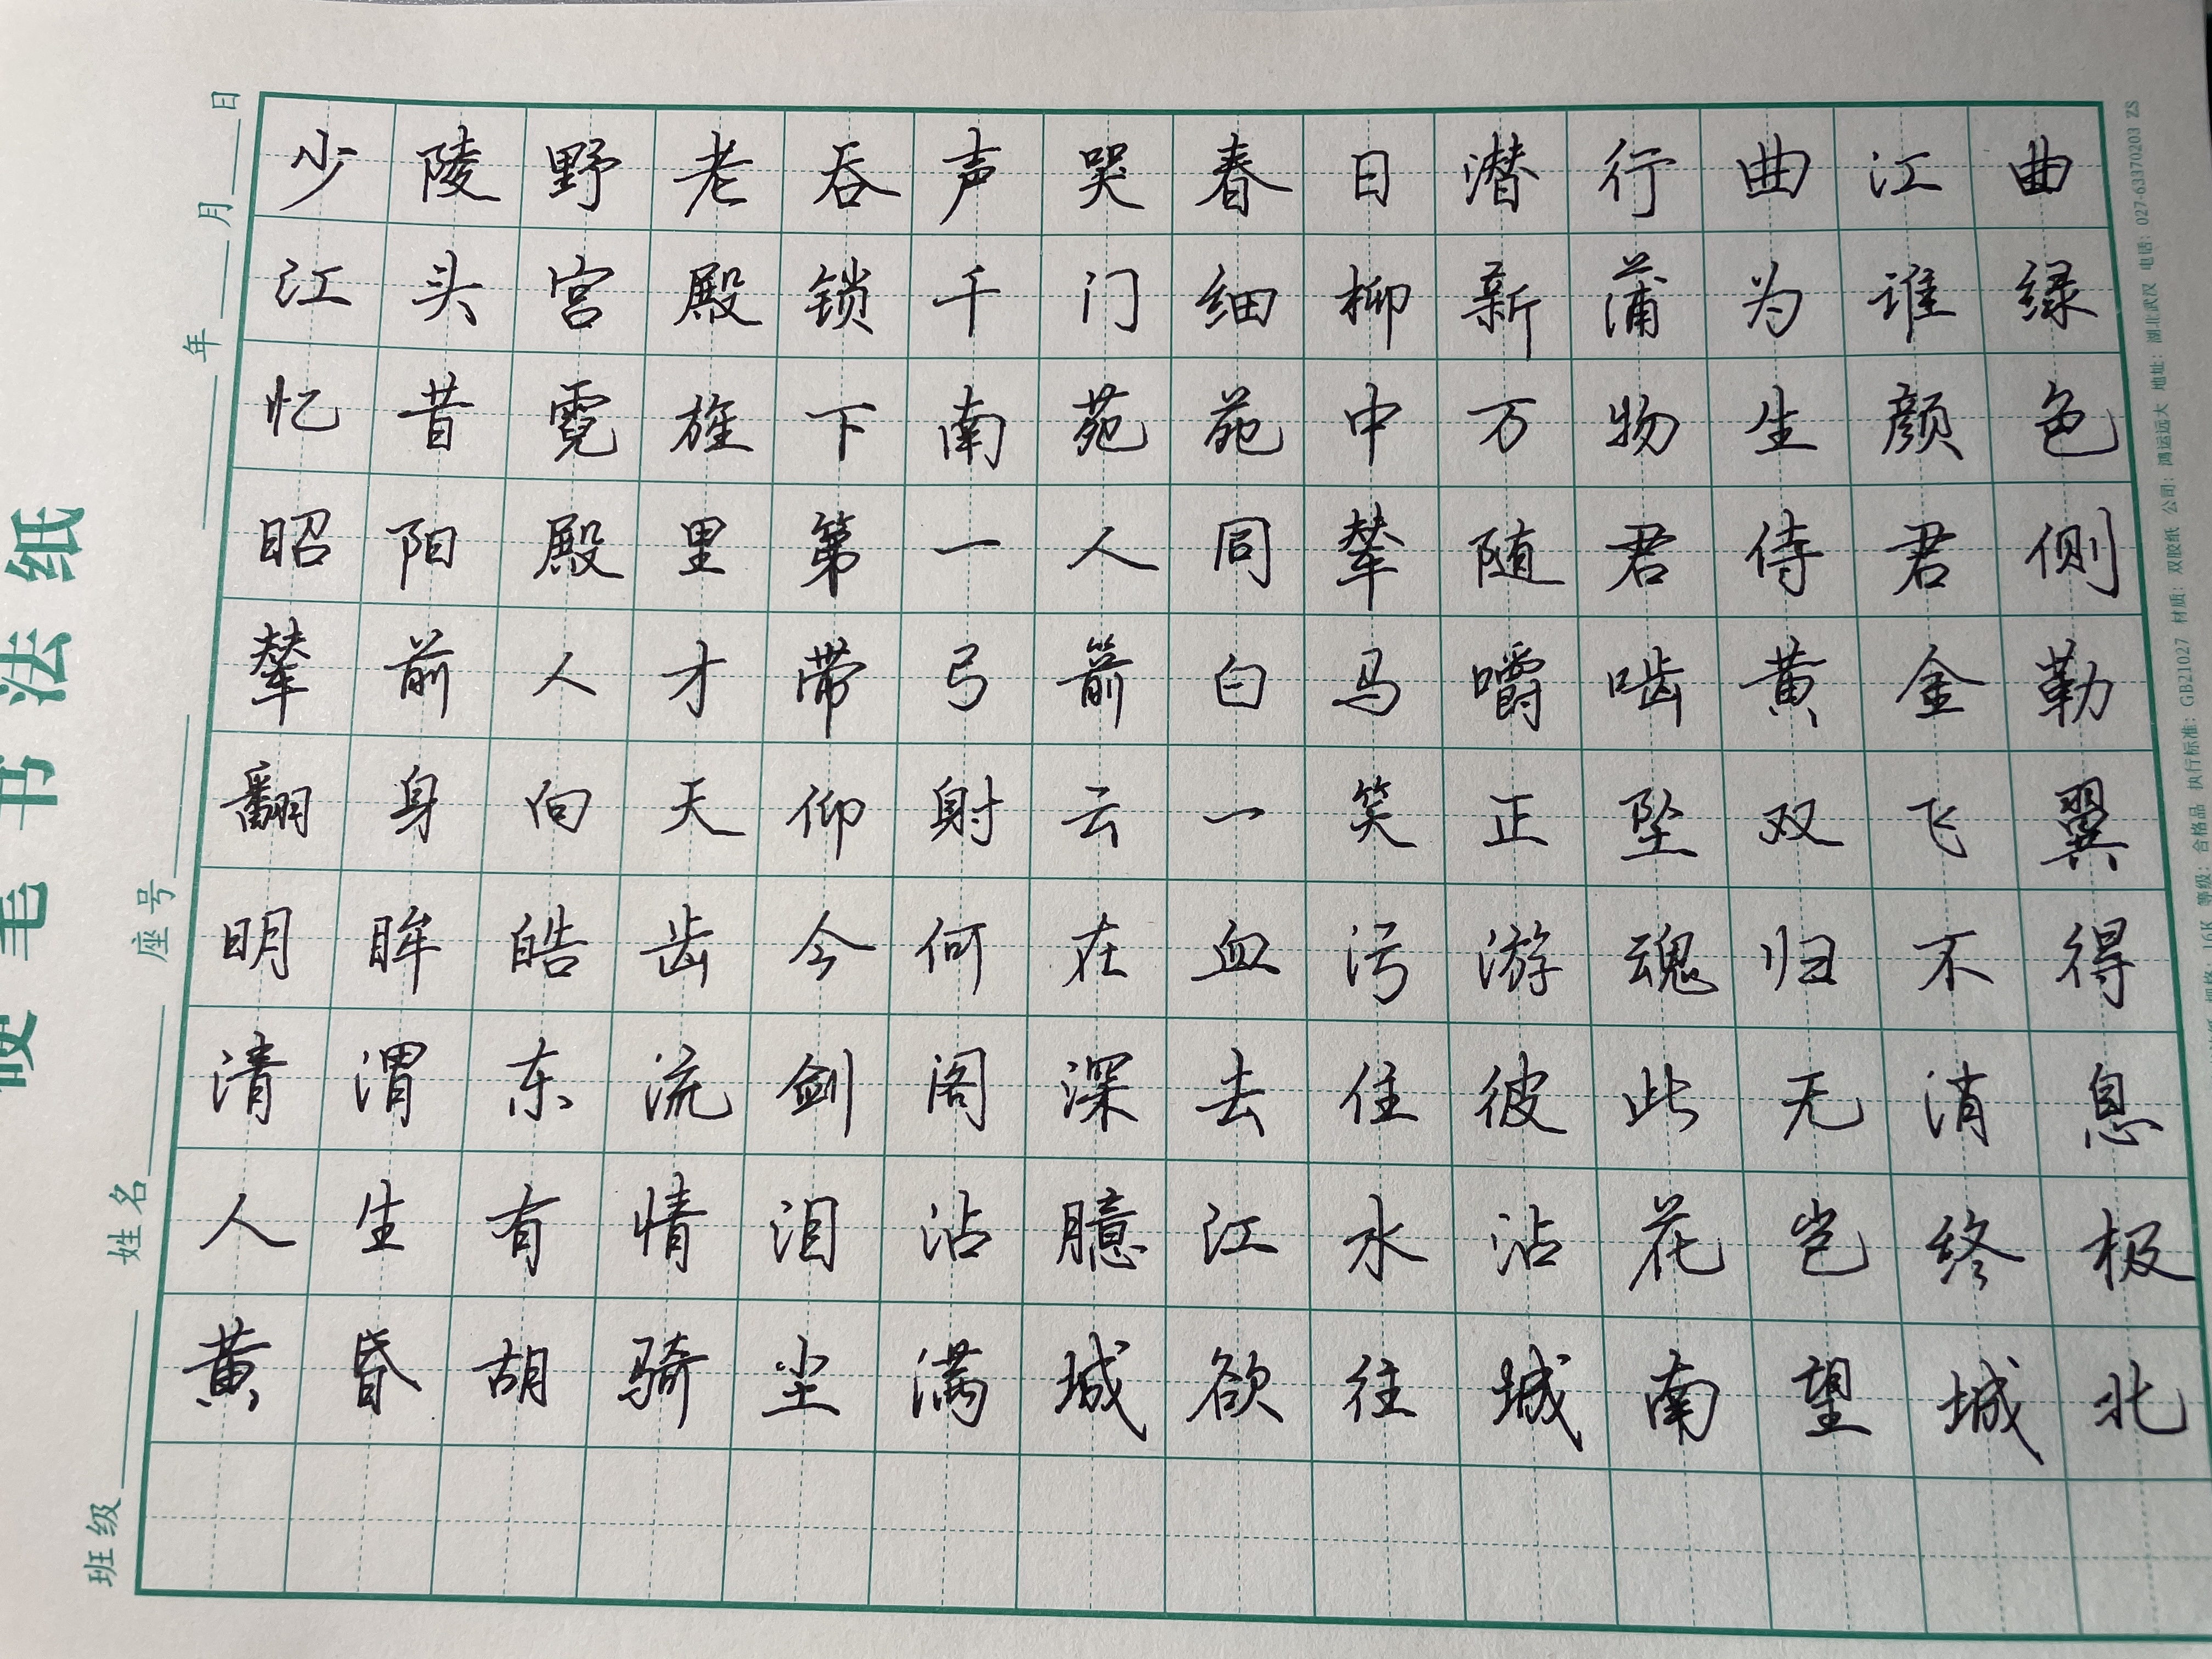 硬笔书法纸
班级 姓名 座号 年 月 日
少陵野老吞声哭春日潜行曲江曲
江头宫殿锁千门细柳新蒲为谁绿
忆昔霓旌下南苑苑中万物生颜色
昭阳殿里第一人同辇随君侍君侧
辇前人才带弓箭白马嚼啮黄金勒
翻身向天仰射云一笑正坠双飞翼
明眸皓齿今何在血污游魂归不得
清渭东流剑阁深去住彼此无消息
人生有情泪沾臆江水沾花岂终极
黄昏胡骑尘满城欲往城南望城北
规格：16K 等级：合格品 执行标准：GB21027 材质：双胶纸 公司：鸿运远大 地址：湖北武汉 电话：027-63370203 ZS